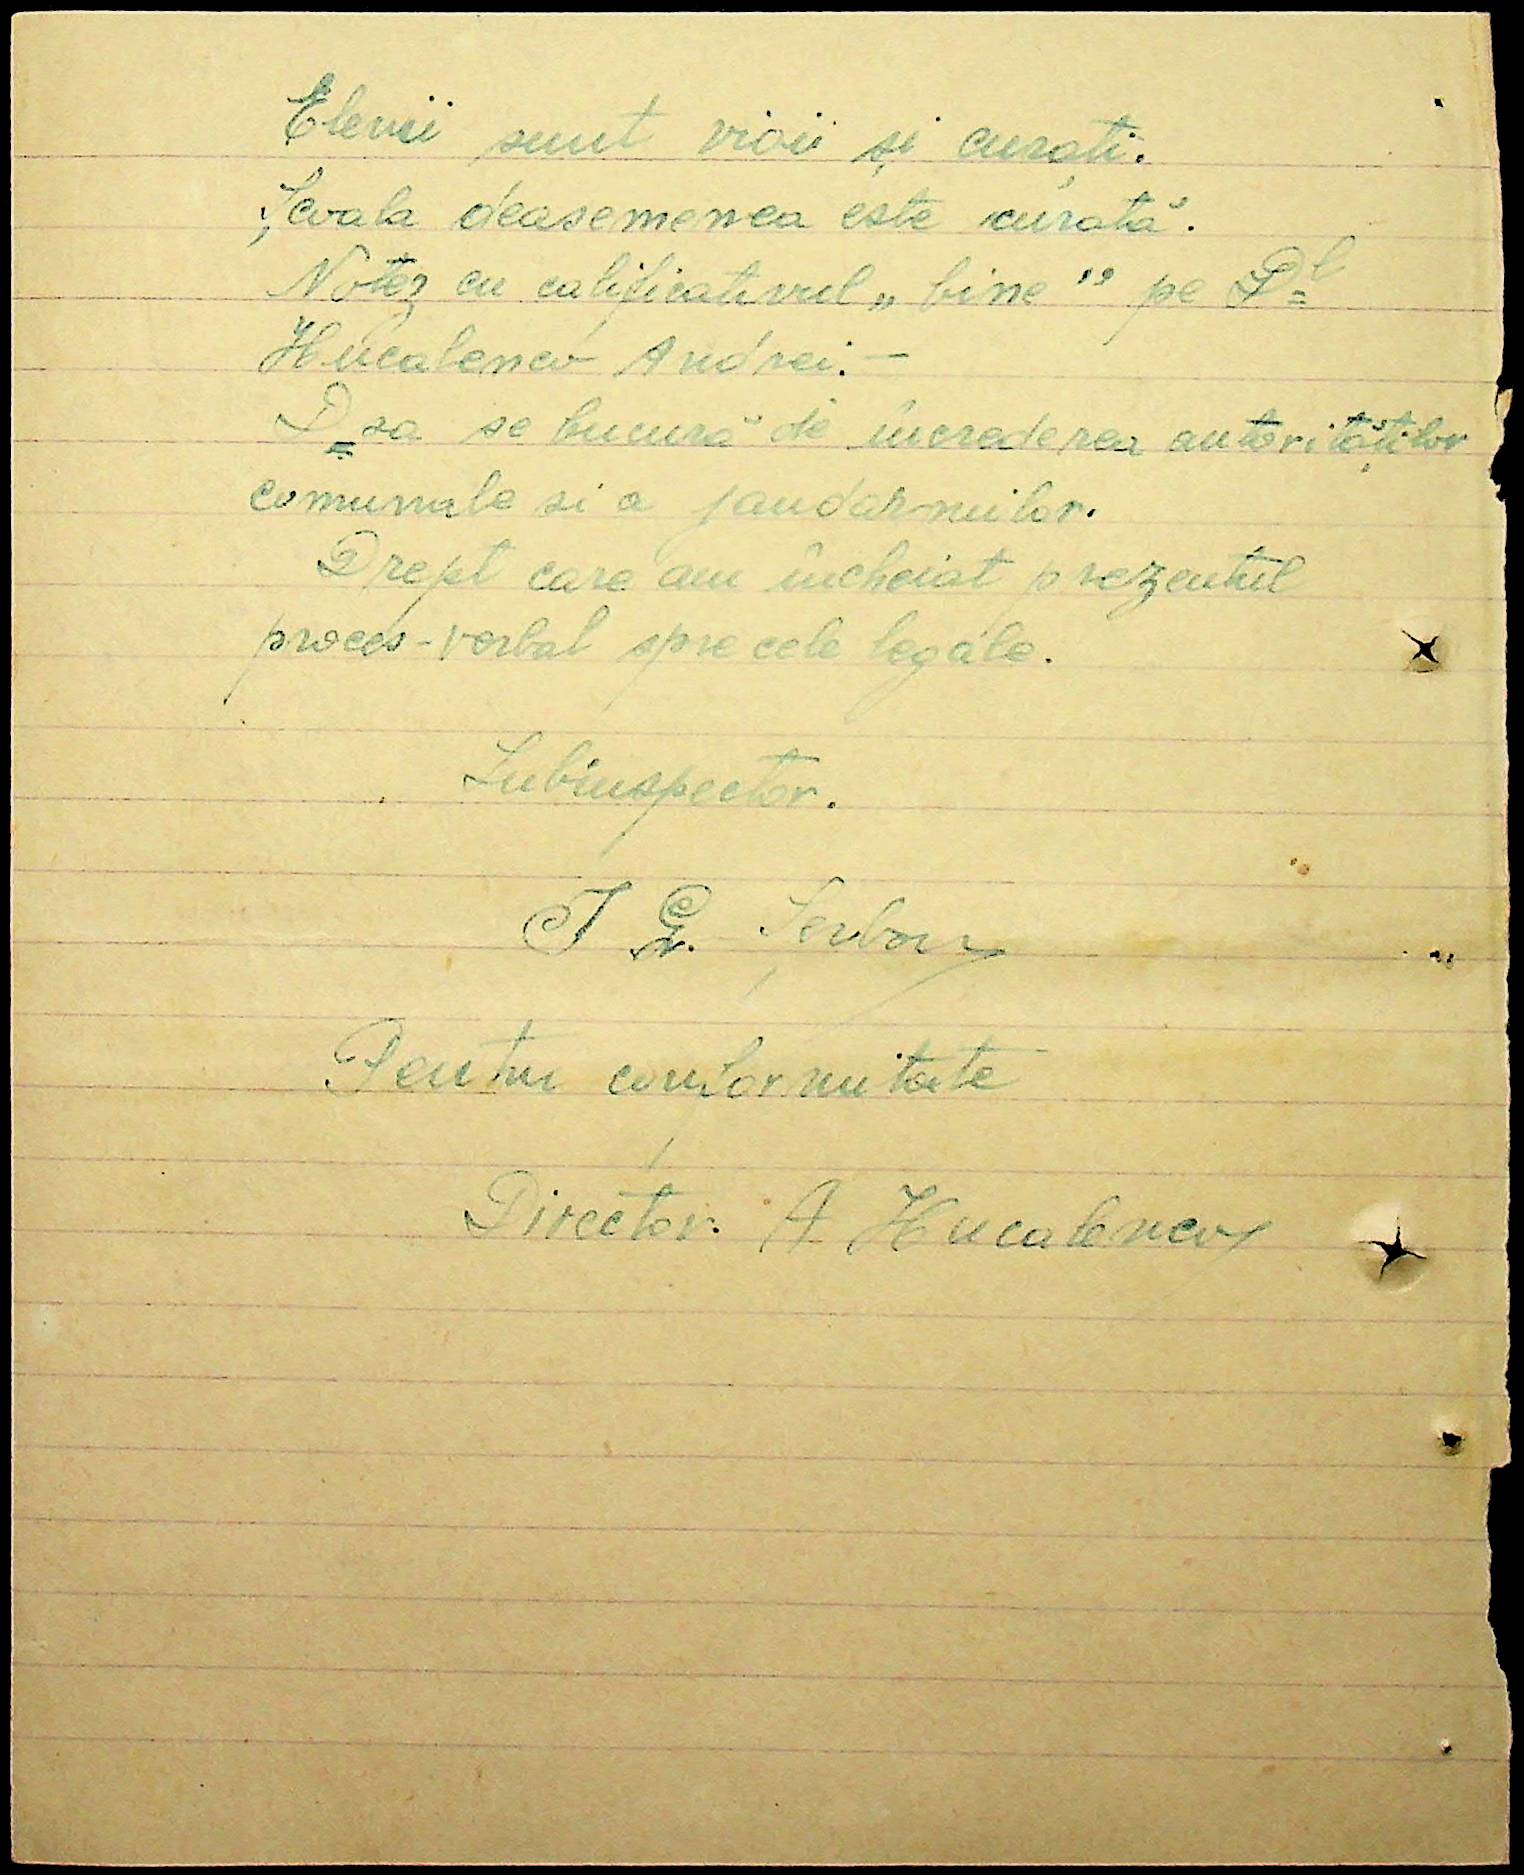 Elevii sunt vioii și curați.
Școala deasemenea este curată.
Notez cu calificativul „bine” pe Dl
Hucalenco Andrei. —
D=sa se bucură de increderea autorităților
comunale si a jandarmilor.
Drept care am încheiat prezentul
proces-verbal spre cele legale.
Subinspector.
I Gr. Serban
Pentru conformitate
Director. A Hucalenco